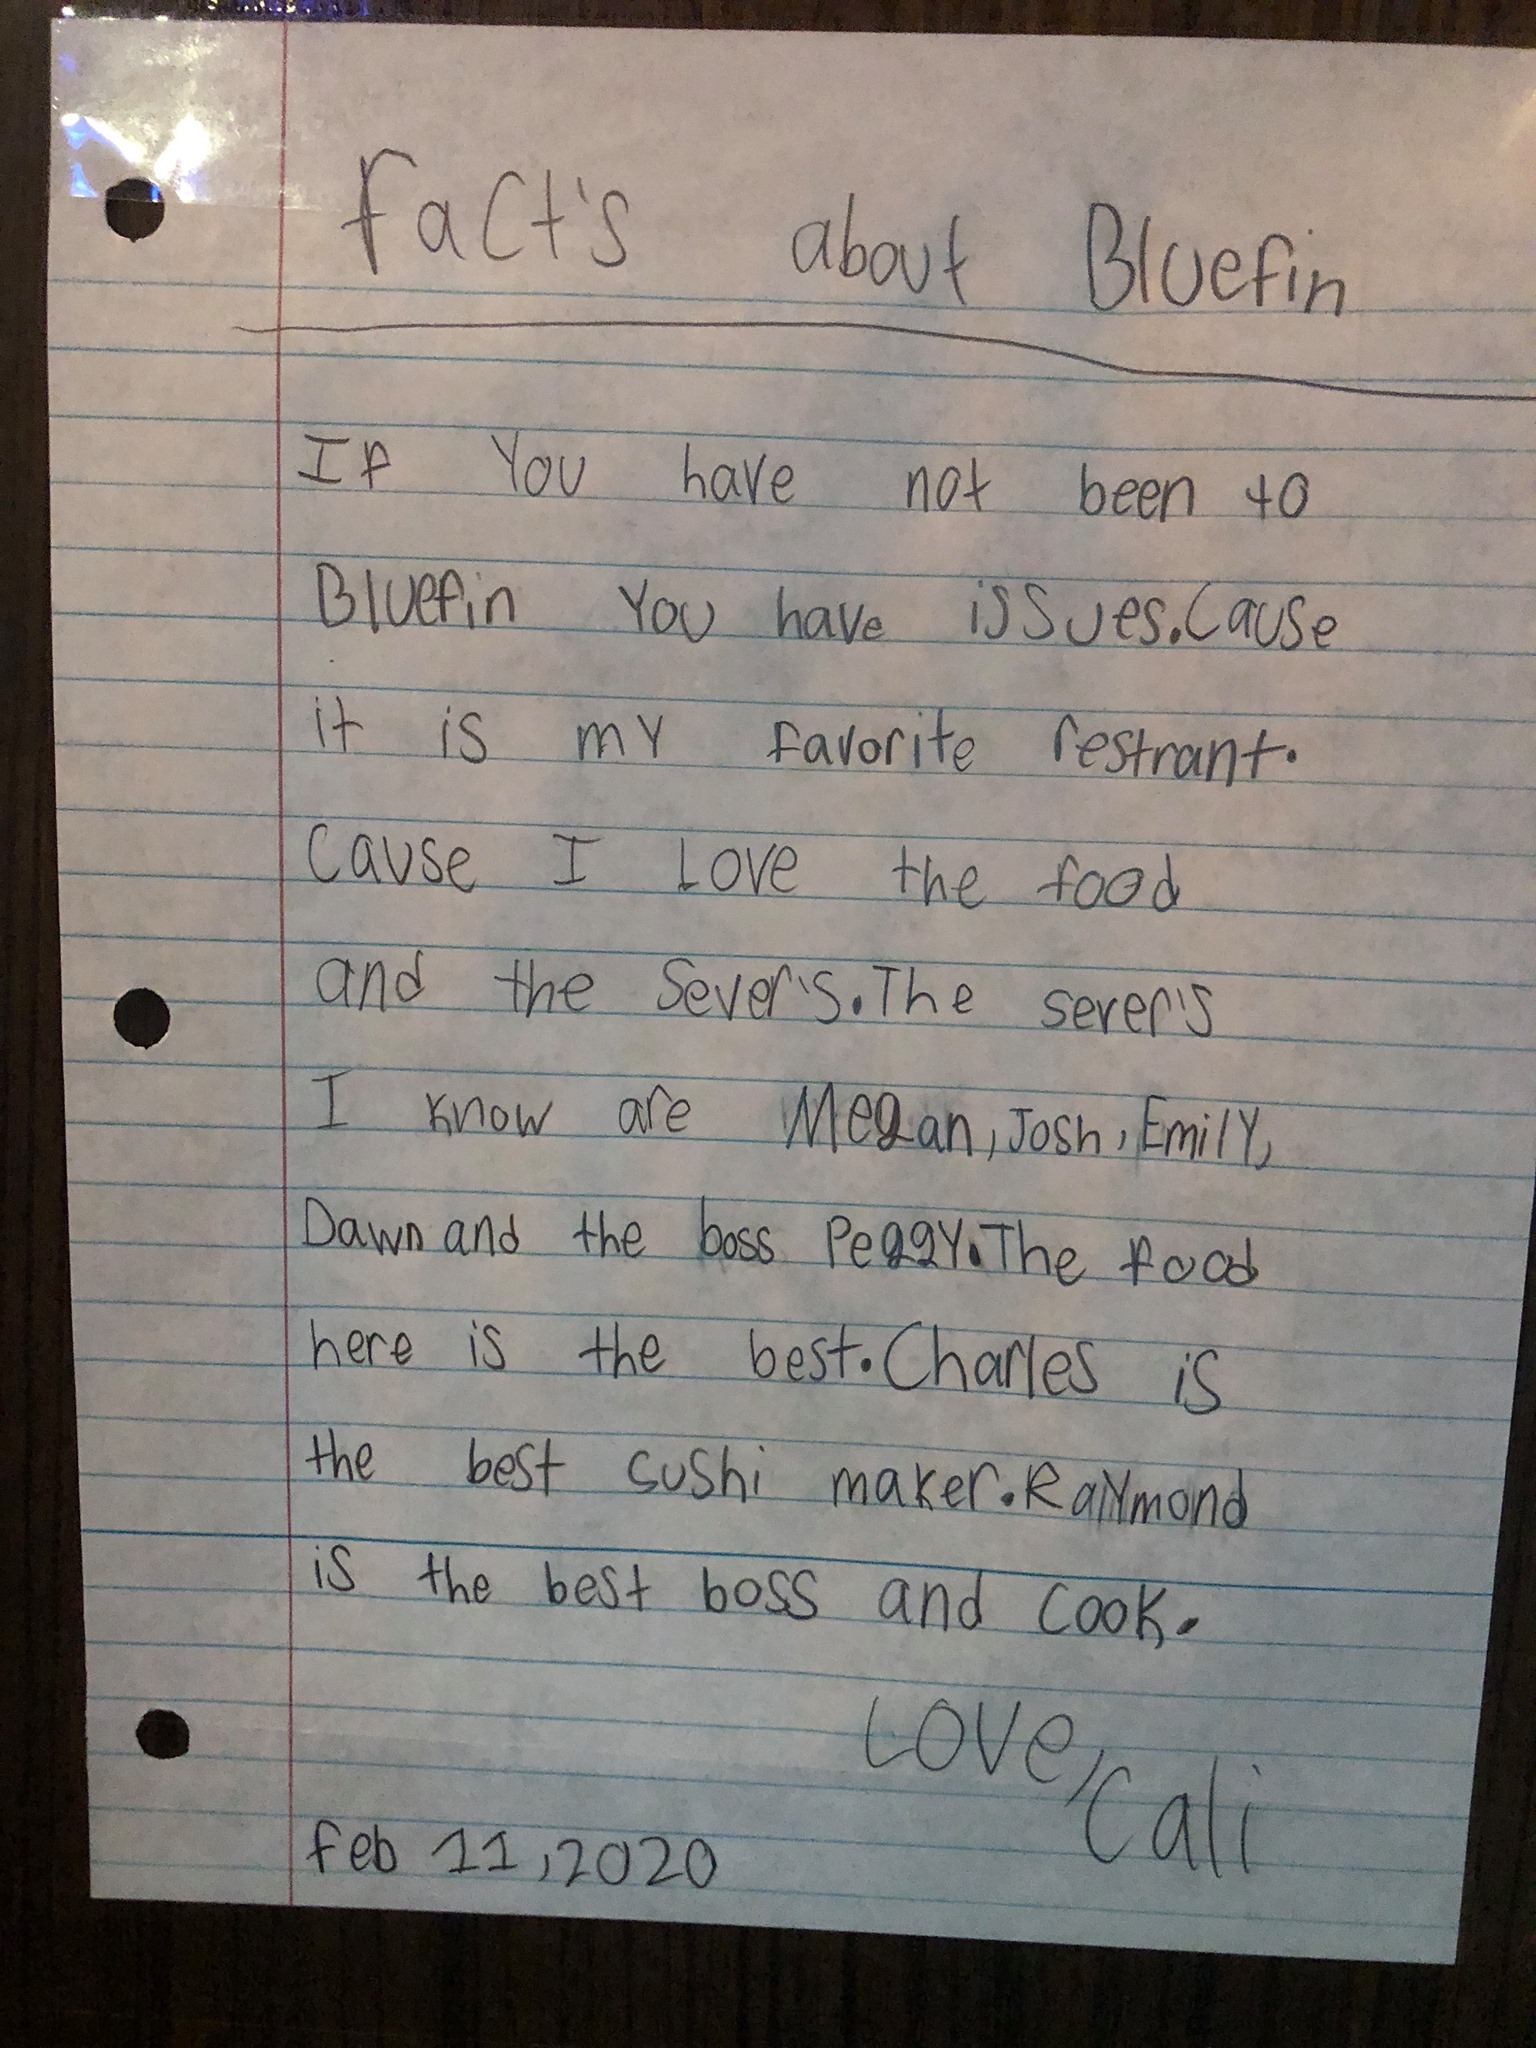 Fact's about Bluefin
If You have not been to
Bluefin You have issues.Cause
it is my favorite restrant.
Cause I Love the food
and the Sever's.The sever's
I know are Megan, Josh, Emily,
Dawn and the boss Peggy.The food
here is the best.Charles is
the best sushi maker.Raymond
is the best boss and cook.
Love,
Cali
Feb 11,2020